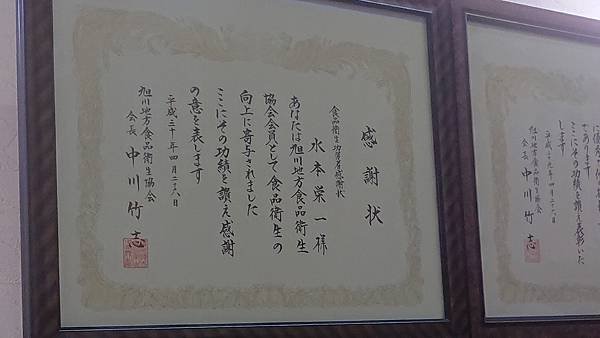 感謝状
食品衛生功労者感謝状
水本栄一様
あなたは旭川地方食品衛生
協会会員として食品衛生の
向上に寄与されました
ここにその功績を讃え感謝
の意を表します
平成三十年四月二十六日
旭川地方食品衛生協会
会長 中川竹志
ここにその功績を讃え表彰いた
します
平成二十九年四月二十六日
旭川地方食品衛生協会
会長 中川竹志